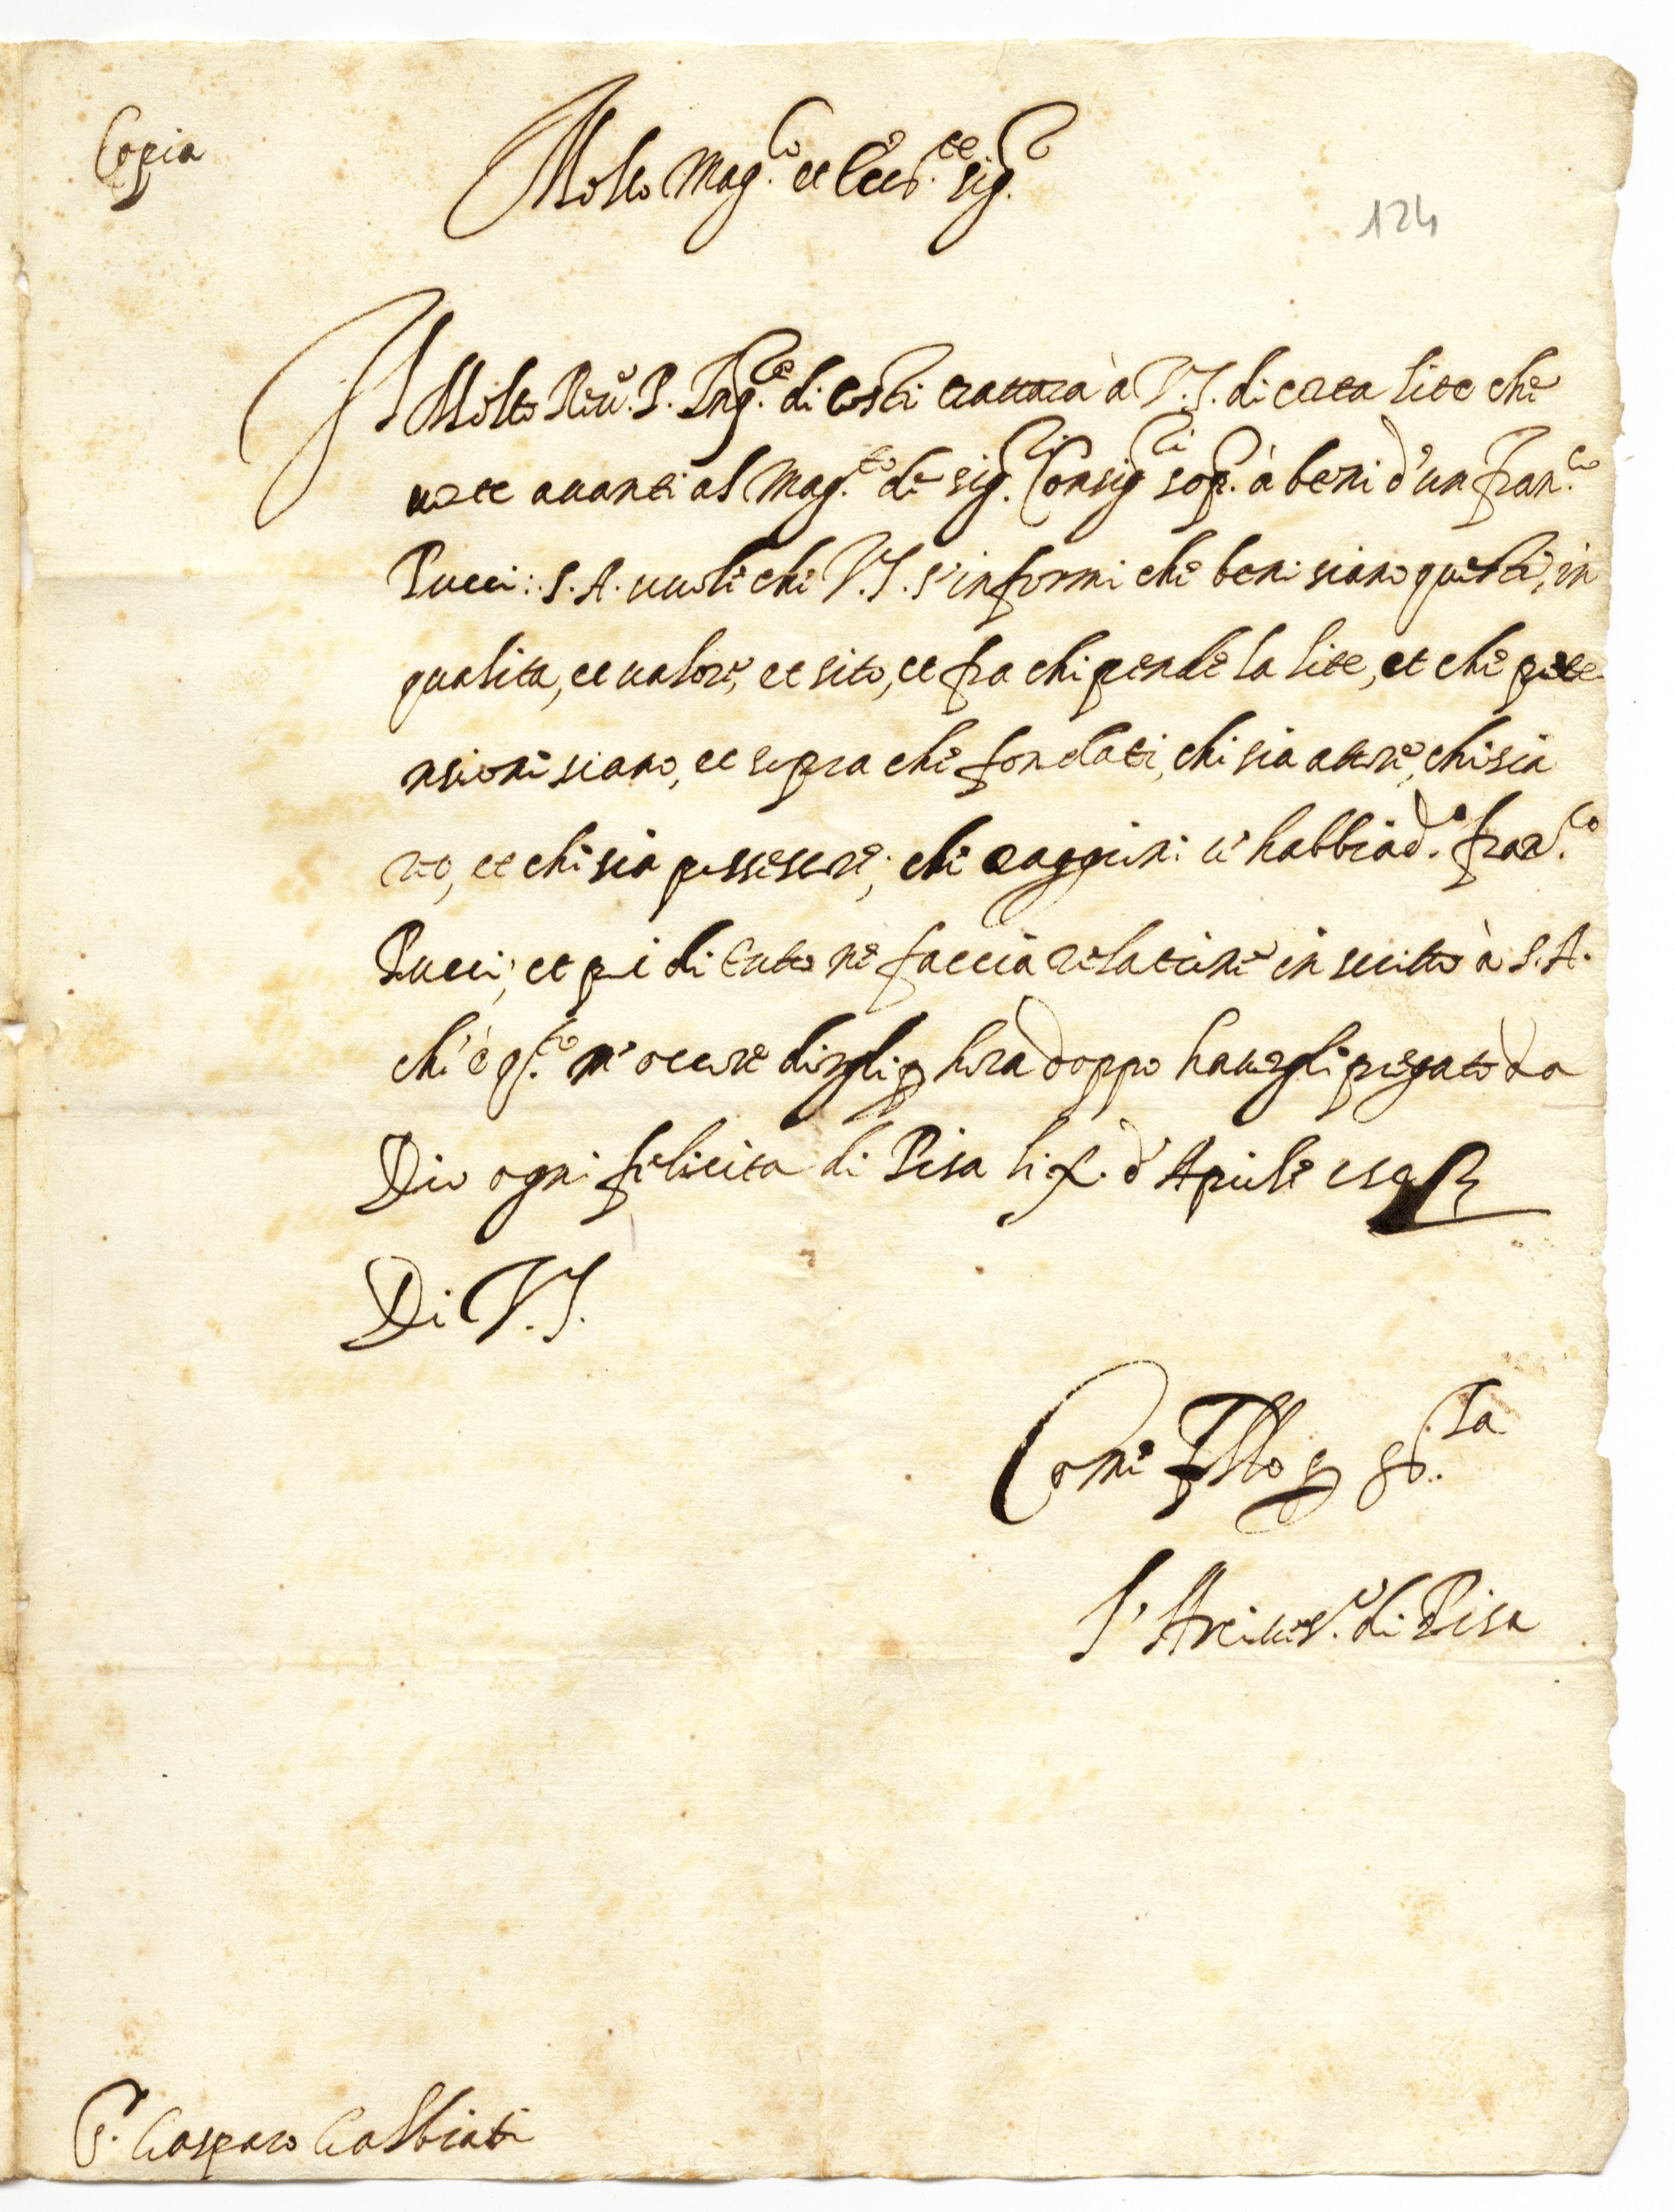 Copia
Molto Mag.co et Ecc.te sig.r
124
Il Molto Rev. P. Inq.re di costi trattara à V.S. di certa lite che
verte avanti al Mag.to de sig.ri Consig.ri sop. à beni d'un Fran.co
Pucci: S.A. vuole che V.S. s'informi che beni siano questi, in
qualita, et valore, et sito, et fra chi pende la lite, et che prete
nsioni siano, et sopra che fondati, chi sia attore, chi sia
reo, et chi sia possessore; che raggioni ci habbia d.o Fran.co
Pucci; et poi di tutto ne faccia relatione in scritto à S.A.
ch'è q.to m'occore dirgli p hora doppo havergli pregato da
Dio ogni felicita di Pisa li X. d'Aprile
Di V.S.
Come fllo p
L'Arcives.o di Pisa
S. Gasparo Galbiati